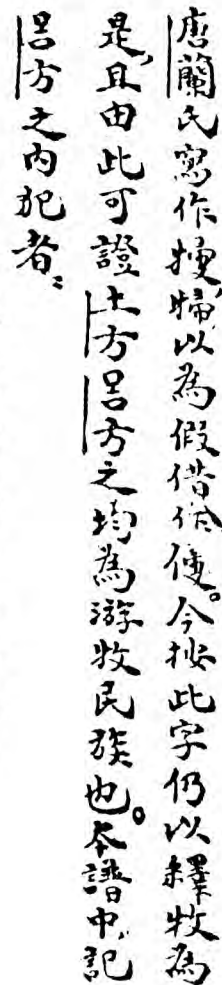 唐蘭氏寫作㨁,㛐,以為假借作侵。今按此字仍以釋牧為
是,且由此可證土方𠮷方之均為游牧民族也。本譜中,記
𠮷方之內犯者: